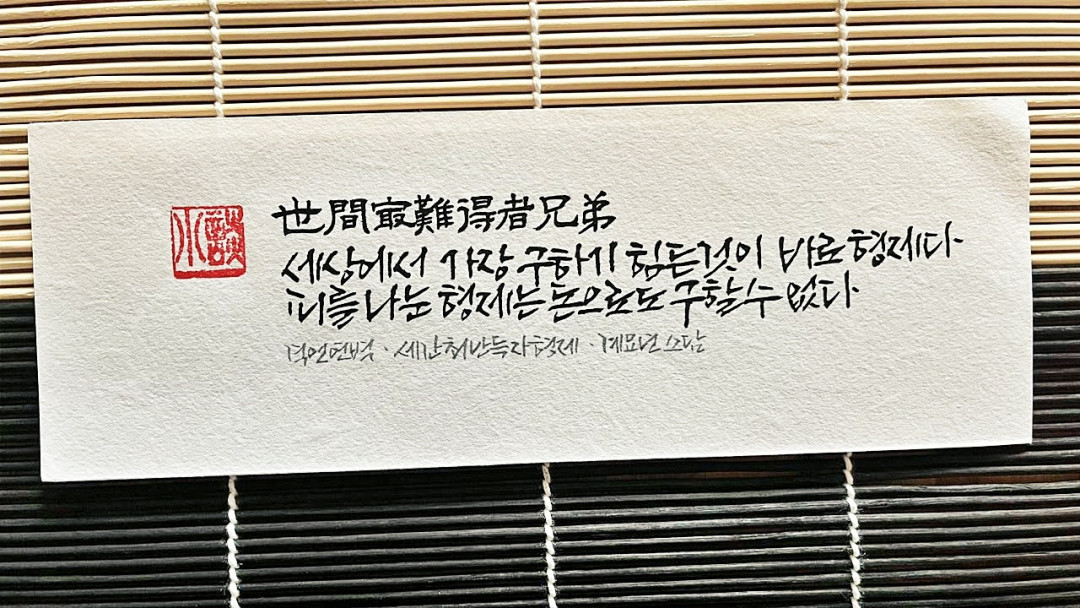 世間最難得者兄弟
세상에서 가장 구하기 힘든것이 바로 형제다
피를 나눈 형제는 돈으로도 구할 수 없다
격언연벽 · 세간최난득자형제 · 계묘년 소담